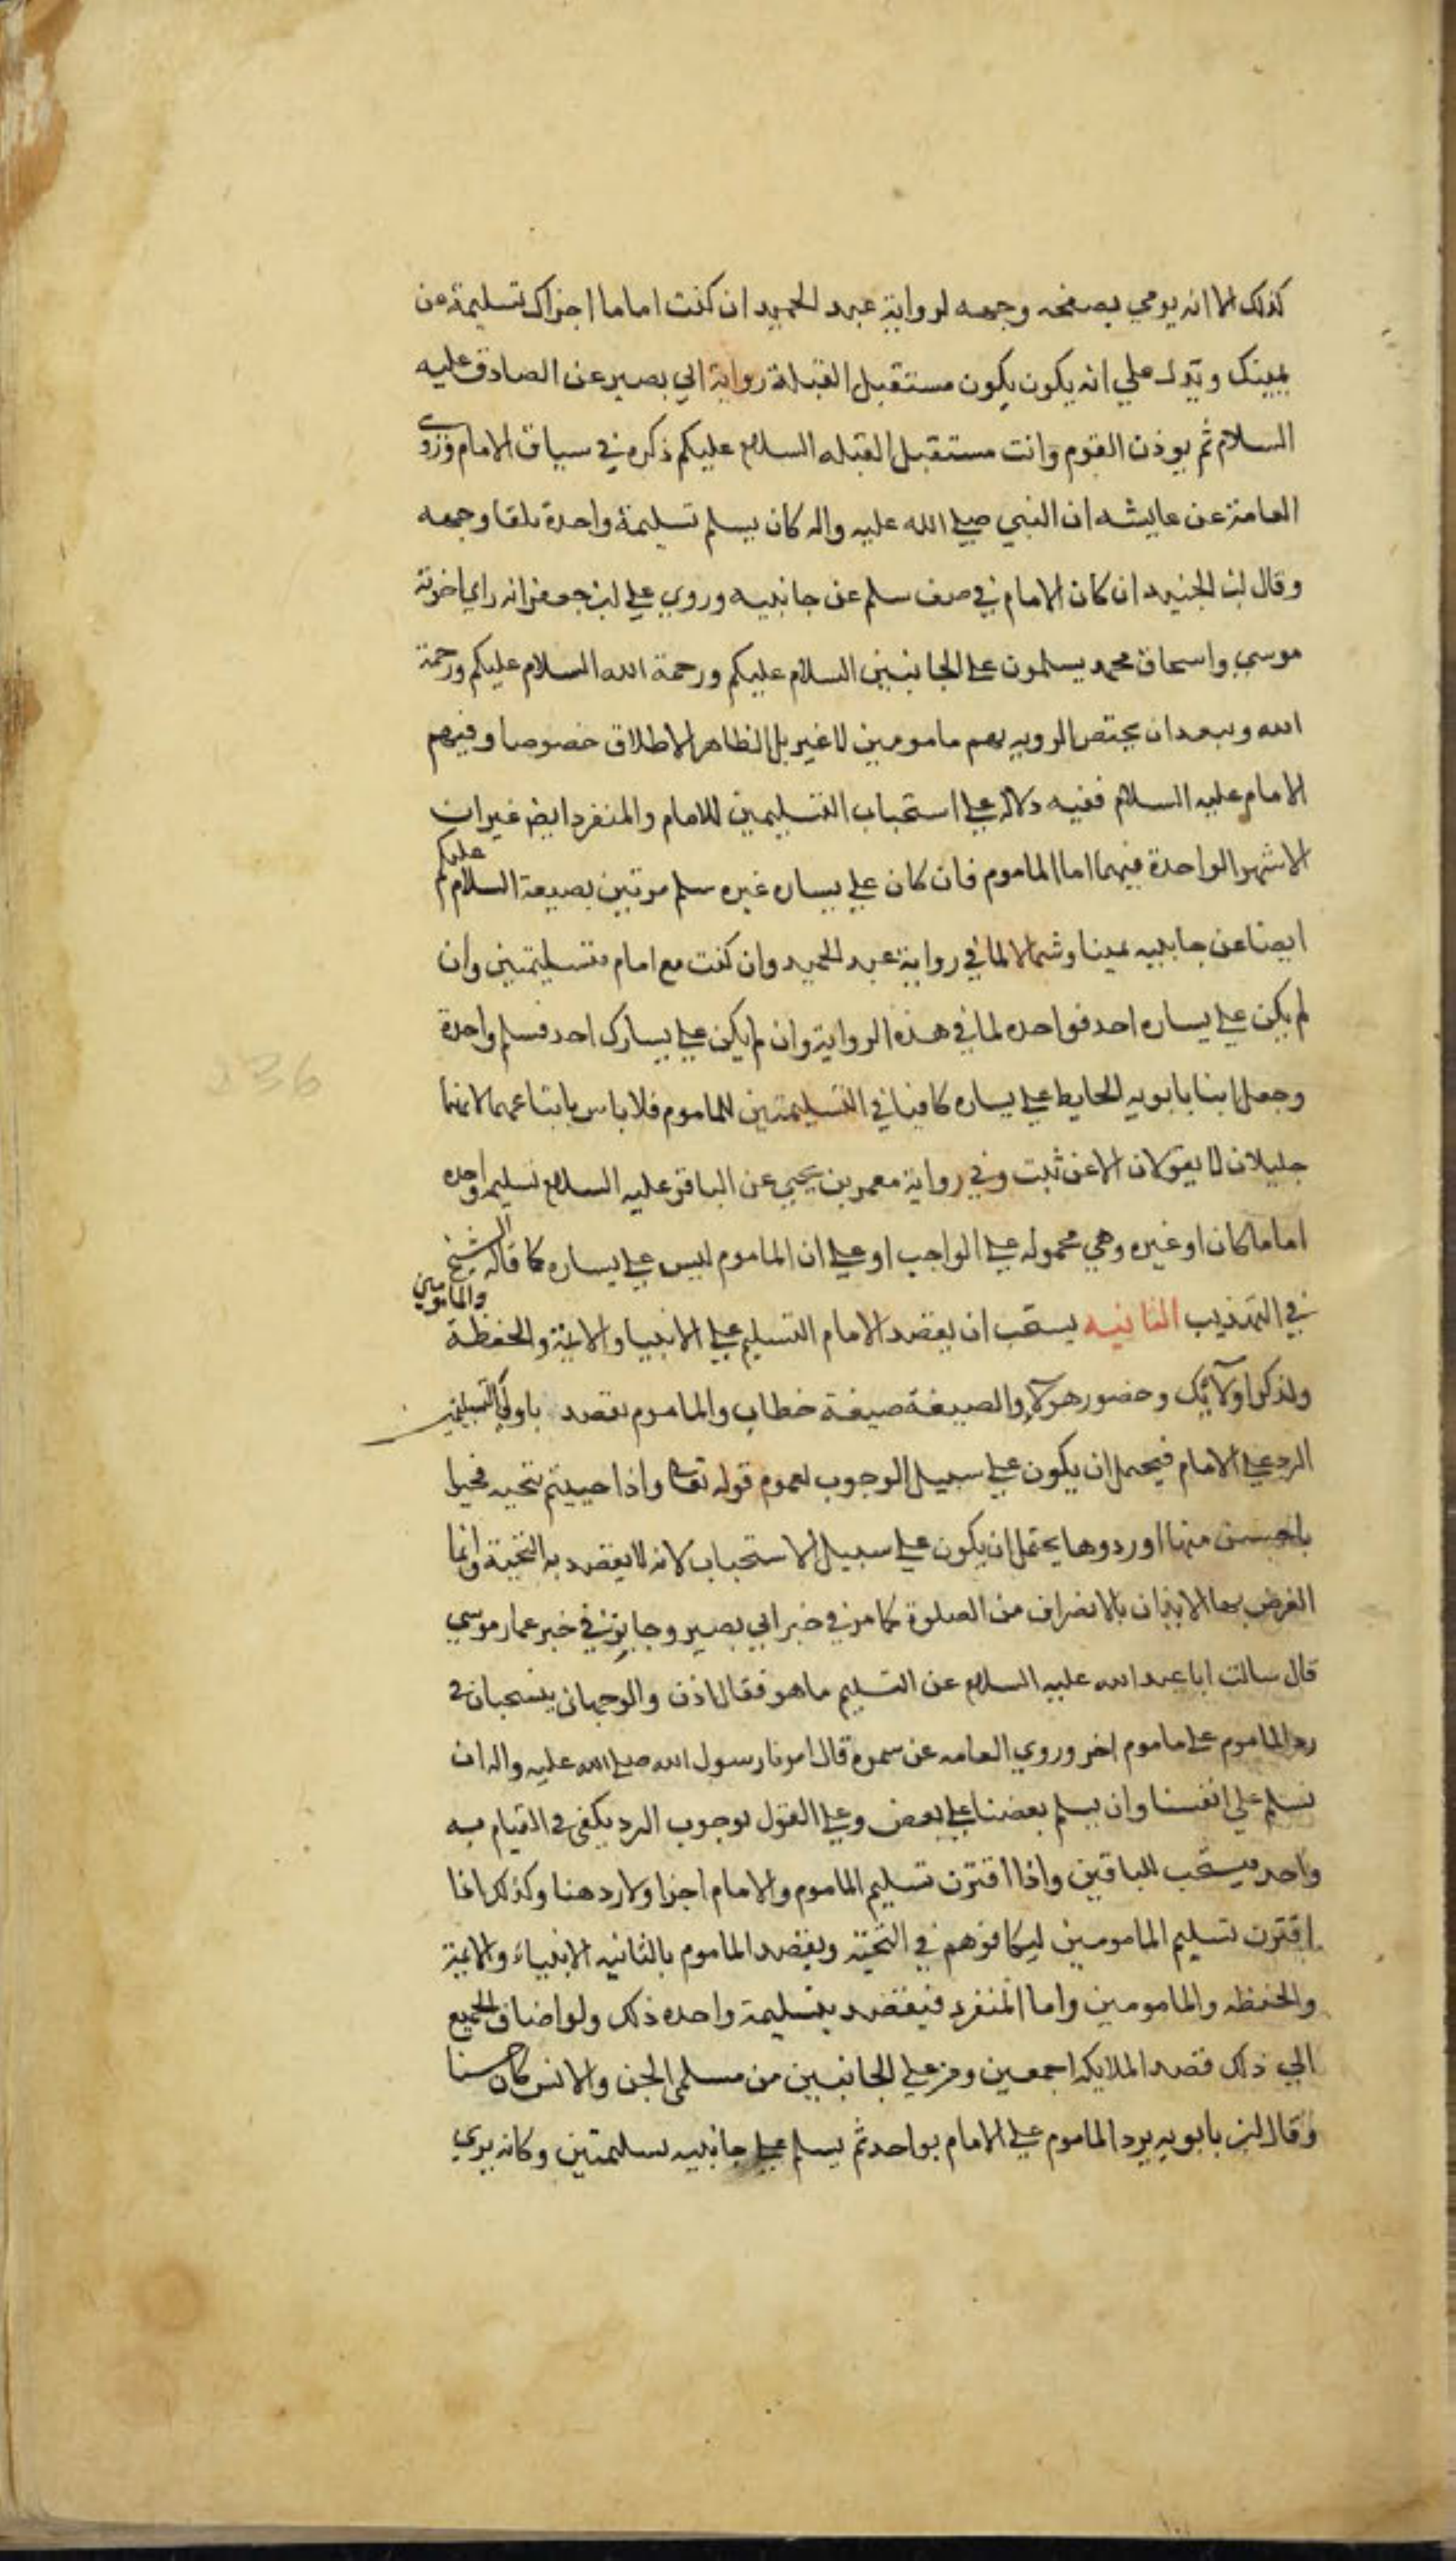 كذلك الا انه يومي بصفحه وجهه لرواية عبد الحميد ان كنت اماما اجزاك تسليمة عن
يمينك وتدل علي انه يكون يكون مستقبل القبلة رواية ابي بصير عن الصادق عليه
السلام ثم يوذن القوم وانت مستقبل القبله السلام عليكم ذكره في سياق الامام وروى
العامة عن عايشه ان النبي صلى الله عليه واله كان يسلم تسليمة واحدة تلقا وجهه
وقال ابن الجنيد ان كان الامام في صف سلم عن جانبيه وروي علي ابن جعفر انه راي اخوته
موسي واسحاق محمد يسلمون على الجانبين السلام عليكم ورحمة الله السلام عليكم ورحمة
الله وببعد ان يختص الرويه بهم مامومين لا غير بل الظاهر الاطلاق خصوصا وفيهم
الامام عليه السلام ففيه دلالة على استحباب التسليمين للامام والمنفرد ايضا غير ان
الاشهر الواحدة فيهما اما الماموم فان كان على يساره غيره سلم مرتين بصيغة السلام عليكم
ايضا عن جانبيه يمينا وشمالا لما في رواية عبد الحميد وان كنت مع امام فتسليمتين وان
لم يكن على يساره احد فواحده لما في هذه الرواية وان لم يكن على يسارك احد فسلم واحدة
وجعل ابنا بابويه الحايط على يساره كافيا في التسليمتين للماموم فلا باس باتباعهما لانهما
جليلان لا يقولان الا عن ثبت وفي رواية معمر بن يحيي عن الباقر عليه السلام تسليم واحده
اماما كان او غيره وهي محموله على الواجب او على ان الماموم ليس على يساره كما قاله الشيخ
في التهذيب الثانيه يستحب ان يقصد الامام التسليم على الانبيا والايمة والحفظة والمامومين
ولذكر اولائك وحضور هولاء والصيغة صيغة خطاب والماموم يقصد باولي التسليمتين
الرد على الامام فيحتمل ان يكون على سبيل الوجوب لعموم قوله تعالى واذا حييتم بتحيه فحيوا
باحسن منها او ردوها يحتمل ان يكون على سبيل الاستحباب لانه لا يقصد به التحية وانما
الغرض بها الايذان بالانصراف من الصلوة كما مر في خبر ابي بصير وجا في خبر عمار موسي
قال سالت ابا عبد الله عليه السلام عن التسليم ما هو فقال اذن والوجهان ينسحبان في
رد الماموم على ماموم اخر وروي العامه عن سمره قال امرنا رسول الله صلى الله عليه واله ان
نسلم على انفسنا وان يسلم بعضنا على بعض وعلى القول بوجوب الرد يكفى في القيام به
واحد فيستحب للباقين واذا اقترن تسليم الماموم والامام اجزا ولا رد هنا وكذلك اذا
اقترن تسليم المامومين لتكافوهم في التحية ويقصد الماموم بالثانيه الانبياء والايمة
والحفظه والمامومين واما المنفرد فيقصد بتسليمة واحده ذلك ولو اضاف الجميع
الي ذلك قصد الملايكه اجمعين ومن على الجانبين من مسلمى الجن والانس كان حسنا
وقال ابن بابويه يرد الماموم على الامام بواحد ثم يسلم على جانبيه تسليمتين وكانه يري
236